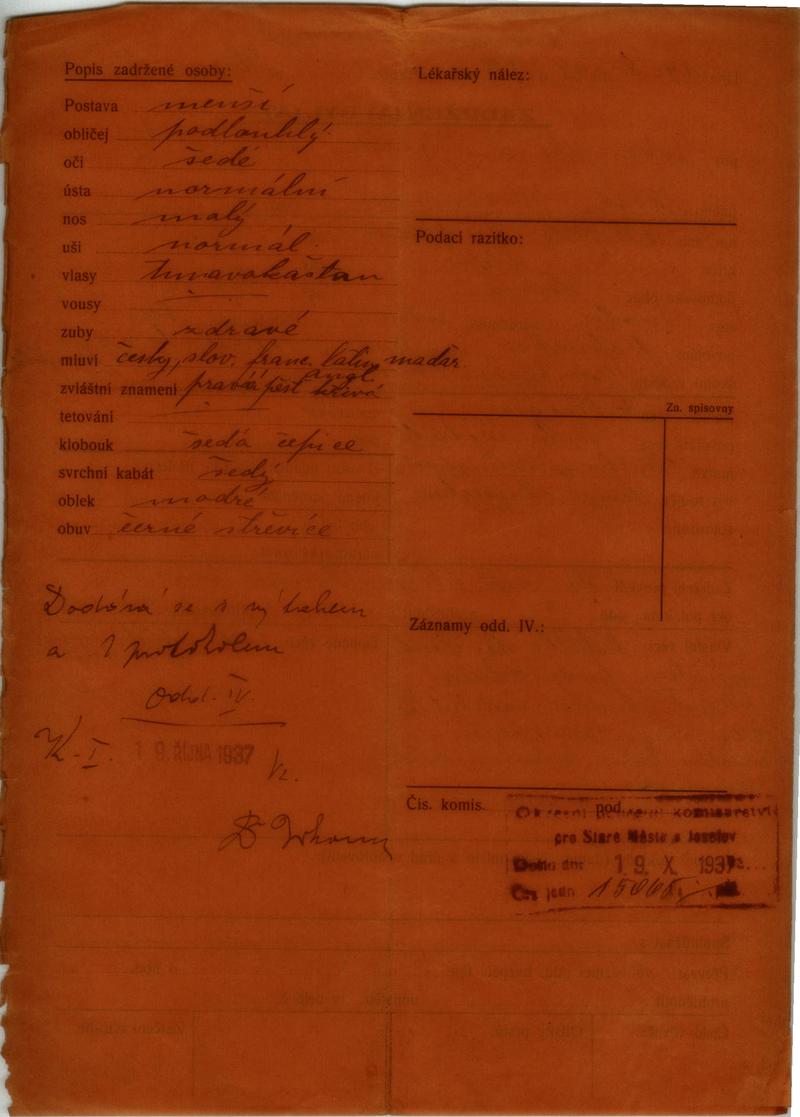 Popis zadržené osoby:
Postava menší
obličej podlouhlý
oči šedé
ústa normální
nos malý
uši normál.
vlasy tmavokaštan
vousy —
zuby zdravé
mluví česky, slov. franc. latin, maďar
angl.
zvláštní znamení pravá pěst křivá
tetování —
klobouk šedá čepice
svrchní kabát šedý
oblek modré
obuv černé střevíce
Dodává se s
a 1 protokolem
Odd. IV.
K-I. 19. ŘÍJNA 1937
Lékařský nález:
Podací razítko:
Zn. spisovny
Záznamy odd. IV.:
Čís. komis. pod
Okresní policejní komisařství
pro Staré Město a Josefov
Došlo dne 19. X. 1937
Čís. jedn. 15065